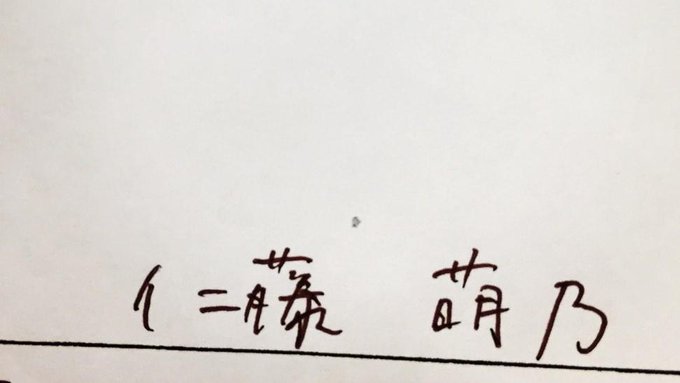 仁藤 萌乃